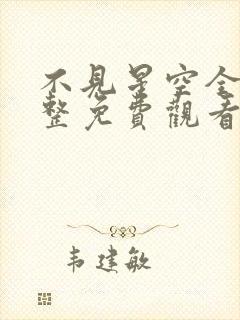 不見星空全
整免費觀看
韦建敏